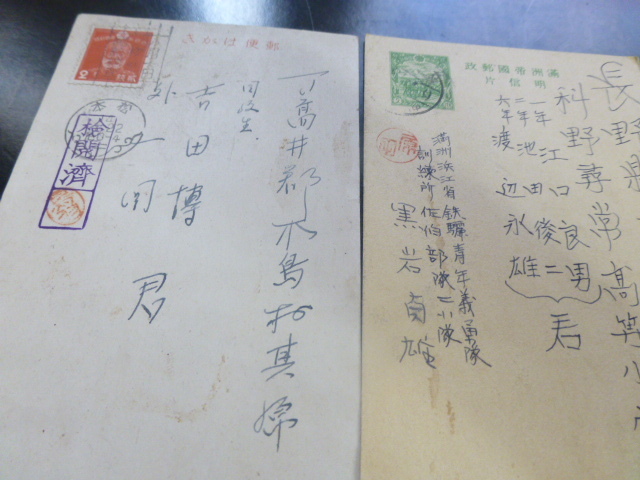 きがは便郵
下高井郡木島村其綿
同級生
吉田博
外一同 君
検閲済
政郵國帝洲滿
片信明
長野県
科野尋常高等小学
一年 江口良男
二年 池田俊二
六年 渡辺永雄
君
満洲浜江省鉄驪青年義勇隊
訓練所佐伯部隊二小隊
黒岩貞雄